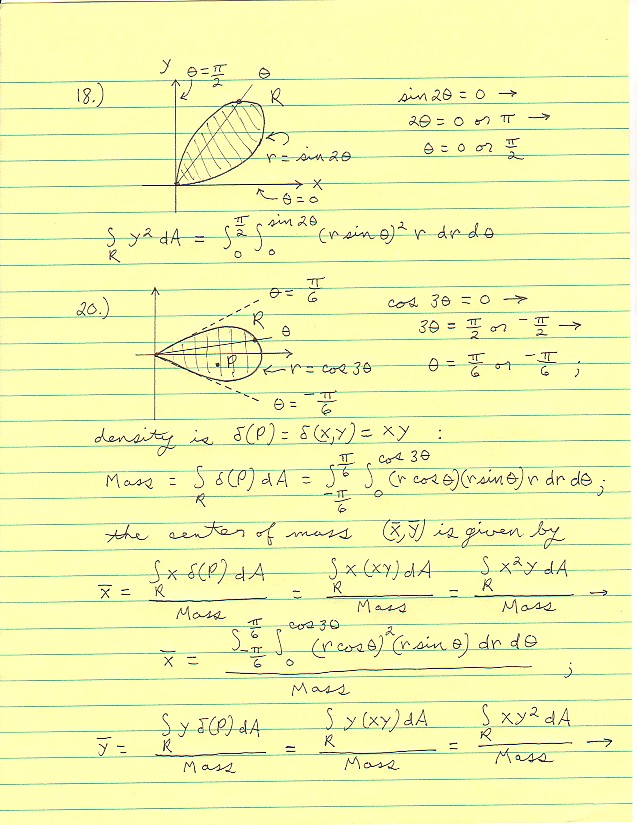 18.)
y
θ = π/2
θ
R
r = sin 2θ
x
θ = 0
sin 2θ = 0 →
2θ = 0 or π →
θ = 0 or π/2
∫_R y² dA = ∫_0^{π/2} ∫_0^{sin 2θ} (r sin θ)² r dr dθ
20.)
θ = π/6
R
θ
P
r = cos 3θ
θ = -π/6
cos 3θ = 0 →
3θ = π/2 or -π/2 →
θ = π/6 or -π/6 ;
density is δ(P) = δ(x,y) = xy :
Mass = ∫_R δ(P) dA = ∫_{-π/6}^{π/6} ∫_0^{cos 3θ} (r cos θ)(r sin θ) r dr dθ ;
the center of mass (x̄, ȳ) is given by
x̄ = ∫_R x δ(P) dA / Mass = ∫_R x (xy) dA / Mass = ∫_R x² y dA / Mass →
x̄ = ∫_{-π/6}^{π/6} ∫_0^{cos 3θ} (r cos θ)² (r sin θ) dr dθ / Mass ;
ȳ = ∫_R y δ(P) dA / Mass = ∫_R y (xy) dA / Mass = ∫_R xy² dA / Mass →